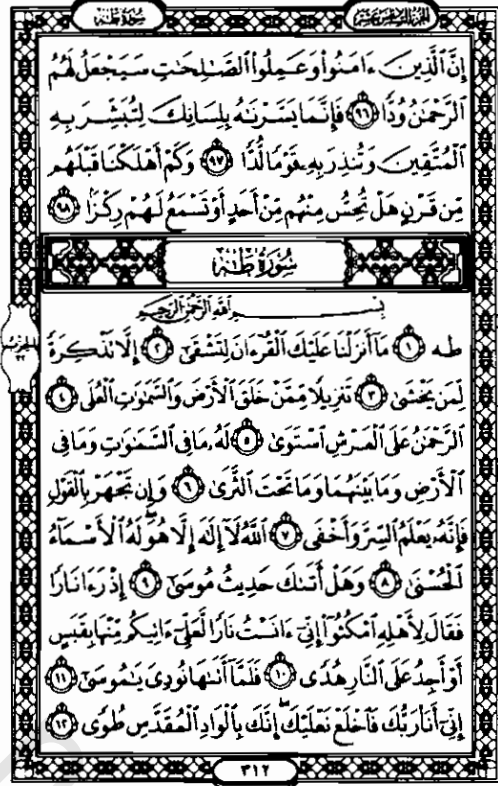 سُورَةُ طه
الجُزْءُ السَّادِسَ عَشَرَ
إِنَّ ٱلَّذِينَ ءَامَنُوا۟ وَعَمِلُوا۟ ٱلصَّـٰلِحَـٰتِ سَيَجْعَلُ لَهُمُ
ٱلرَّحْمَـٰنُ وُدًّا ٩٦ فَإِنَّمَا يَسَّرْنَـٰهُ بِلِسَانِكَ لِتُبَشِّرَ بِهِ
ٱلْمُتَّقِينَ وَتُنذِرَ بِهِۦ قَوْمًا لُّدًّا ٩٧ وَكَمْ أَهْلَكْنَا قَبْلَهُم
مِّن قَرْنٍ هَلْ تُحِسُّ مِنْهُم مِّنْ أَحَدٍ أَوْ تَسْمَعُ لَهُمْ رِكْزًۢا ٩٨
سُورَةُ طه
بِسْمِ ٱللَّهِ ٱلرَّحْمَـٰنِ ٱلرَّحِيمِ
طه ١ مَآ أَنزَلْنَا عَلَيْكَ ٱلْقُرْءَانَ لِتَشْقَىٰٓ ٢ إِلَّا تَذْكِرَةً
لِّمَن يَخْشَىٰ ٣ تَنزِيلًا مِّمَّنْ خَلَقَ ٱلْأَرْضَ وَٱلسَّمَـٰوَٰتِ ٱلْعُلَى ٤
ٱلرَّحْمَـٰنُ عَلَى ٱلْعَرْشِ ٱسْتَوَىٰ ٥ لَهُۥ مَا فِى ٱلسَّمَـٰوَٰتِ وَمَا فِى
ٱلْأَرْضِ وَمَا بَيْنَهُمَا وَمَا تَحْتَ ٱلثَّرَىٰ ٦ وَإِن تَجْهَرْ بِٱلْقَوْلِ
فَإِنَّهُۥ يَعْلَمُ ٱلسِّرَّ وَأَخْفَى ٧ ٱللَّهُ لَآ إِلَـٰهَ إِلَّا هُوَ ۖ لَهُ ٱلْأَسْمَآءُ
ٱلْحُسْنَىٰ ٨ وَهَلْ أَتَىٰكَ حَدِيثُ مُوسَىٰٓ ٩ إِذْ رَءَا نَارًا
فَقَالَ لِأَهْلِهِ ٱمْكُثُوٓا۟ إِنِّىٓ ءَانَسْتُ نَارًا لَّعَلِّىٓ ءَاتِيكُم مِّنْهَا بِقَبَسٍ
أَوْ أَجِدُ عَلَى ٱلنَّارِ هُدًى ١٠ فَلَمَّآ أَتَىٰهَا نُودِىَ يَـٰمُوسَىٰٓ ١١
إِنِّىٓ أَنَا۠ رَبُّكَ فَٱخْلَعْ نَعْلَيْكَ ۖ إِنَّكَ بِٱلْوَادِ ٱلْمُقَدَّسِ طُوًى ١٢
٣١٢